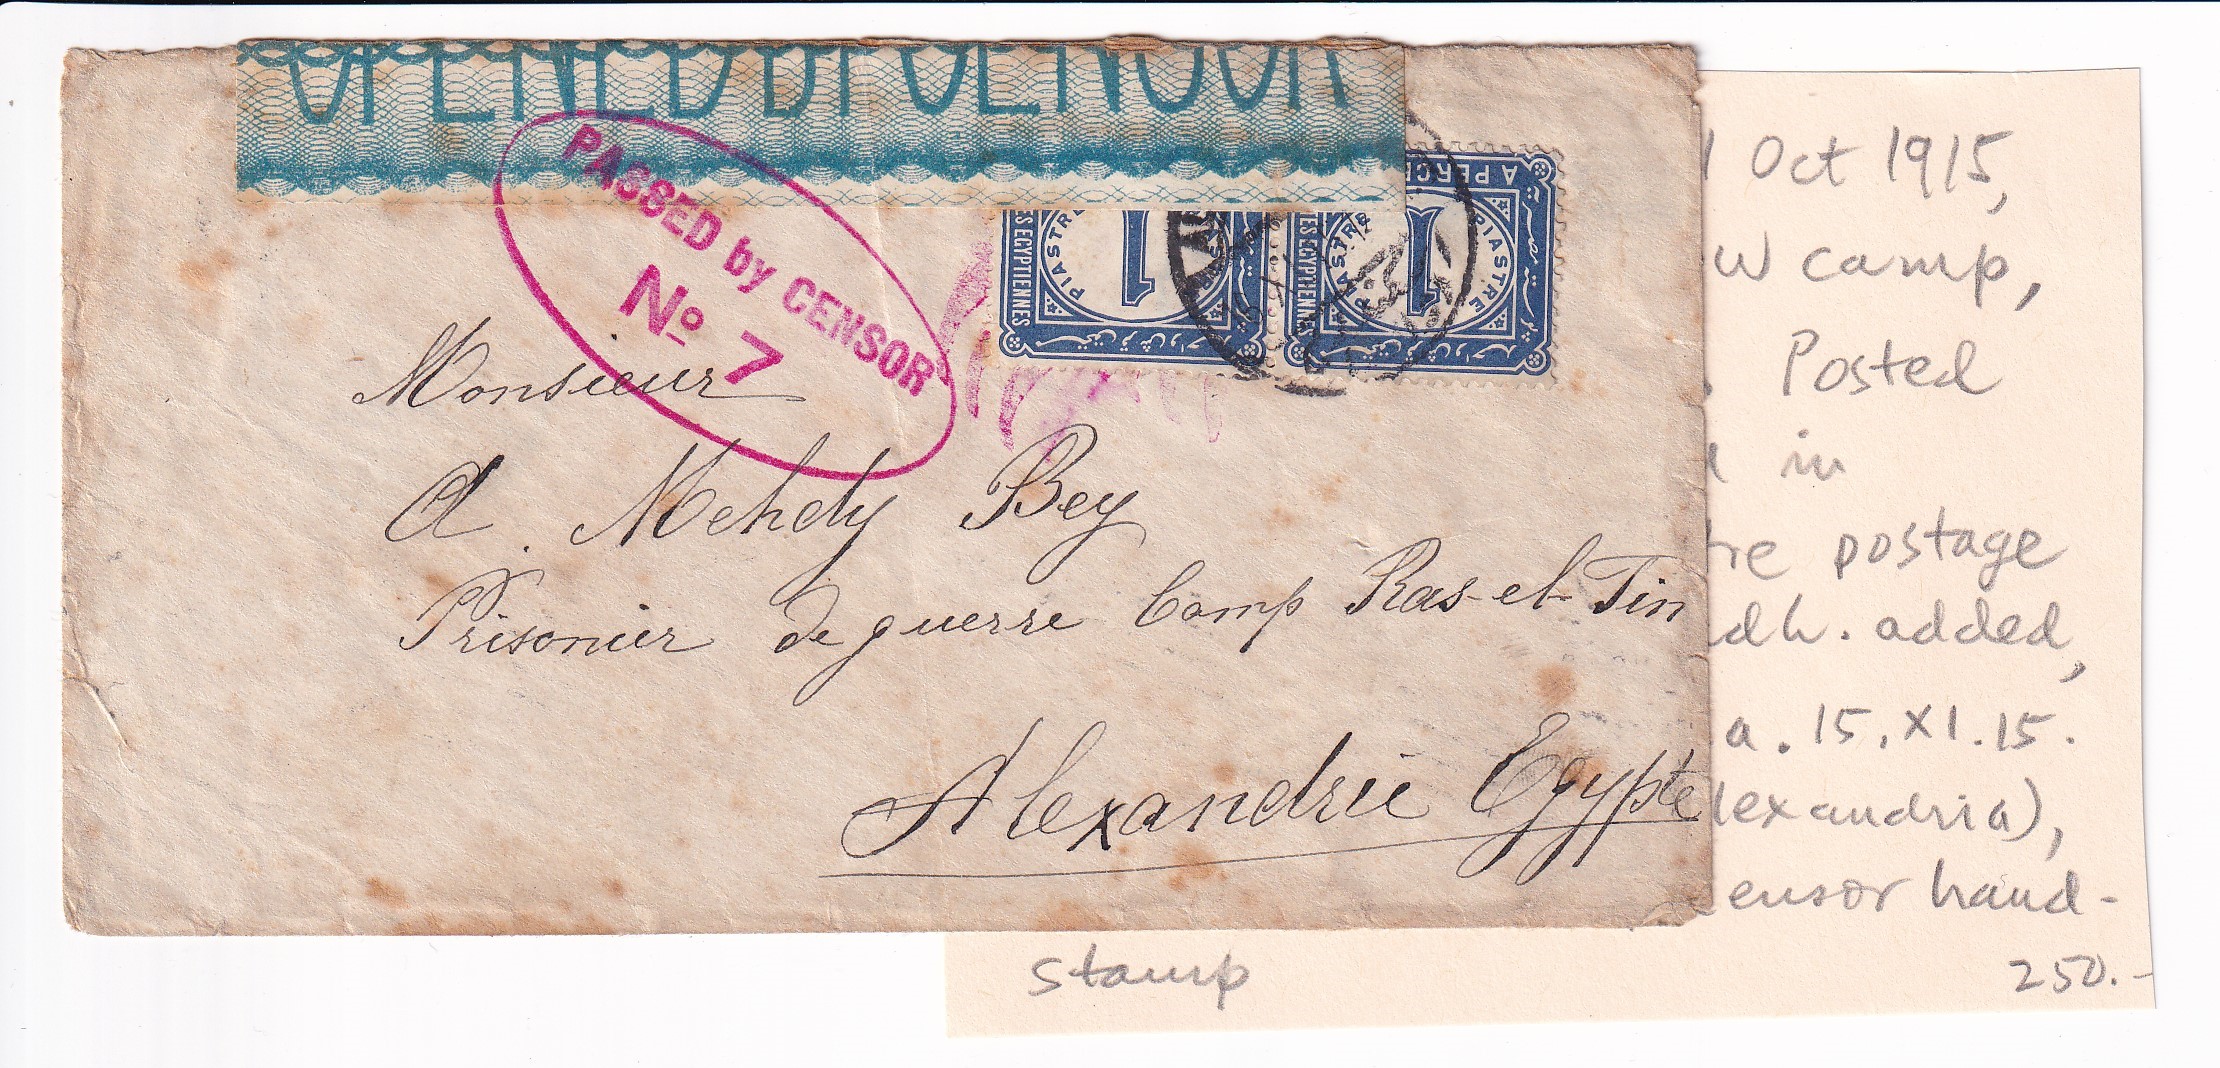 OPENED BY CENSOR
PASSED by CENSOR
Nº 7
PIASTRE
1
ES EGYPTIENNES
A PERCE
PIASTRE
1
PIASTRE
ES EGYPTIENNES
Monsieur
A. Mehdy Bey
Prisonier de guerre Camp Ras-el-Tin
Alexandrie Egypte
1 Oct 1915,
w camp,
. Posted
in
re postage
dh. added,
a. 15.XI.15.
lexandria),
ensor hand-
stamp
250.-